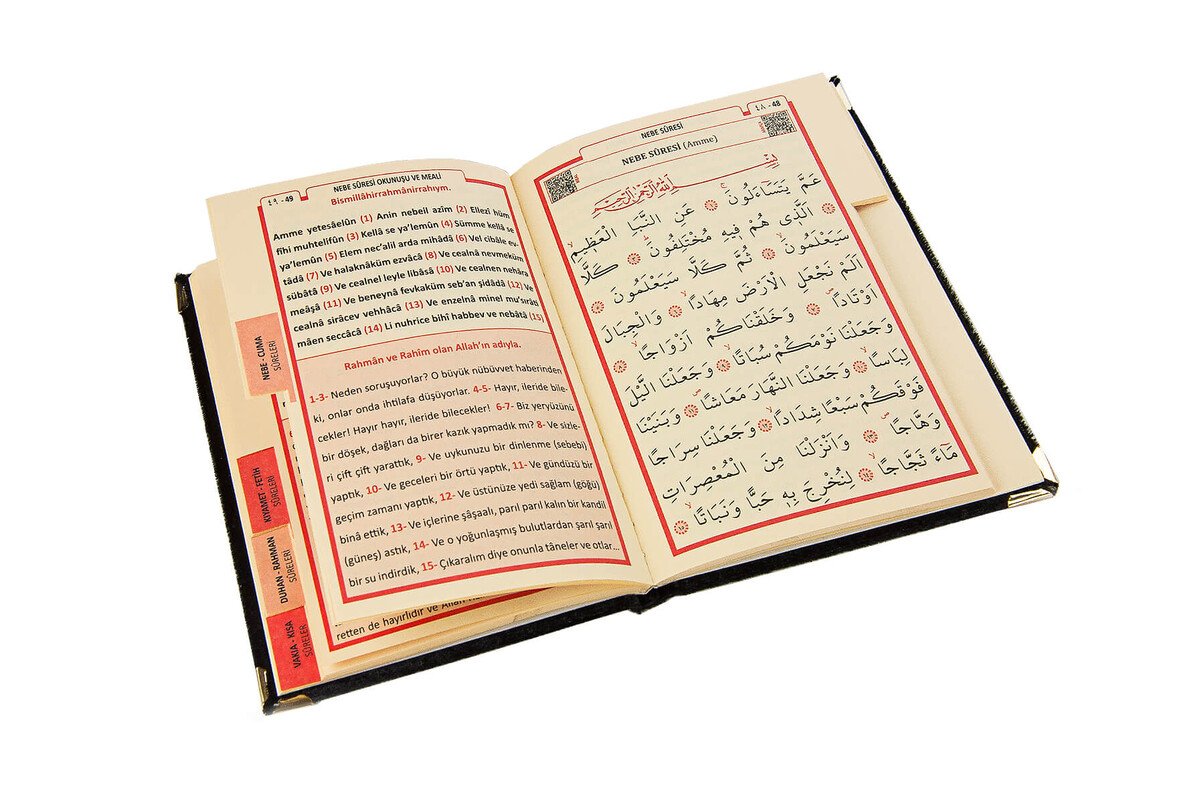 ٤٨ - 48
NEBE SÛRESİ
NEBE SÛRESİ (Amme)
بِسْمِ اللّٰهِ الرَّحْمٰنِ الرَّحِيمِ
عَمَّ يَتَسَاءَلُونَ ﴿١﴾ عَنِ النَّبَإِ الْعَظِيمِ
﴿٢﴾ الَّذِى هُمْ فِيهِ مُخْتَلِفُونَ ﴿٣﴾ كَلَّا
سَيَعْلَمُونَ ﴿٤﴾ ثُمَّ كَلَّا سَيَعْلَمُونَ ﴿٥﴾
اَلَمْ نَجْعَلِ الْاَرْضَ مِهَادًا ﴿٦﴾ وَالْجِبَالَ
اَوْتَادًا ﴿٧﴾ وَخَلَقْنَاكُمْ اَزْوَاجًا ﴿٨﴾
وَجَعَلْنَا نَوْمَكُمْ سُبَاتًا ﴿٩﴾ وَجَعَلْنَا الَّيْلَ
لِبَاسًا ﴿١٠﴾ وَجَعَلْنَا النَّهَارَ مَعَاشًا ﴿١١﴾ وَبَنَيْنَا
فَوْقَكُمْ سَبْعًا شِدَادًا ﴿١٢﴾ وَجَعَلْنَا سِرَاجًا
وَهَّاجًا ﴿١٣﴾ وَاَنْزَلْنَا مِنَ الْمُعْصِرَاتِ
مَاءً ثَجَّاجًا ﴿١٤﴾ لِنُخْرِجَ بِهِ حَبًّا وَنَبَاتًا ﴿١٥﴾
٤٩ - 49
NEBE SÛRESİ OKUNUŞU VE MEALİ
Bismillâhirrahmânirrahıym.
Amme yetesâelûn (1) Anin nebeil azîm (2) Ellezî hüm
fîhi muhtelifûn (3) Kellâ se ya'lemûn (4) Sümme kellâ se
ya'lemûn (5) Elem nec'alil arda mihâdâ (6) Vel cibâle ev-
tâdâ (7) Ve halaknâküm ezvâcâ (8) Ve cealnâ nevmeküm
sübâtâ (9) Ve cealnel leyle libâsâ (10) Ve cealnen nehâra
meâşâ (11) Ve beneynâ fevkaküm seb'an şidâdâ (12) Ve
cealnâ sirâcev vehhâcâ (13) Ve enzelnâ minel mu'sırâti
mâen seccâcâ (14) Li nuhrice bihî habbev ve nebâtâ (15)
Rahmân ve Rahîm olan Allah'ın adıyla.
1-3- Neden soruşuyorlar? O büyük nübüvvet haberinden
ki, onlar onda ihtilafa düşüyorlar. 4-5- Hayır, ileride bile-
cekler! Hayır hayır, ileride bilecekler! 6-7- Biz yeryüzünü
bir döşek, dağları da birer kazık yapmadık mı? 8- Ve sizle-
ri çift çift yarattık, 9- Ve uykunuzu bir dinlenme (sebebi)
yaptık, 10- Ve geceleri bir örtü yaptık, 11- Ve gündüzü bir
geçim zamanı yaptık, 12- Ve üstünüze yedi sağlam (göğü)
binâ ettik, 13- Ve içlerine şâşaalı, parıl parıl kalın bir kandil
(güneş) astık, 14- Ve o yoğunlaşmış bulutlardan şarıl şarıl
bir su indirdik, 15- Çıkaralım diye onunla tâneler ve otlar...
retten de hayırlıdır ve Allah
NEBE - CUMA
SÛRELERİ
KIYAMET - FETİH
SÛRELERİ
DUHAN - RAHMAN
SÛRELERİ
VAKIA - KISA
SÛRELER